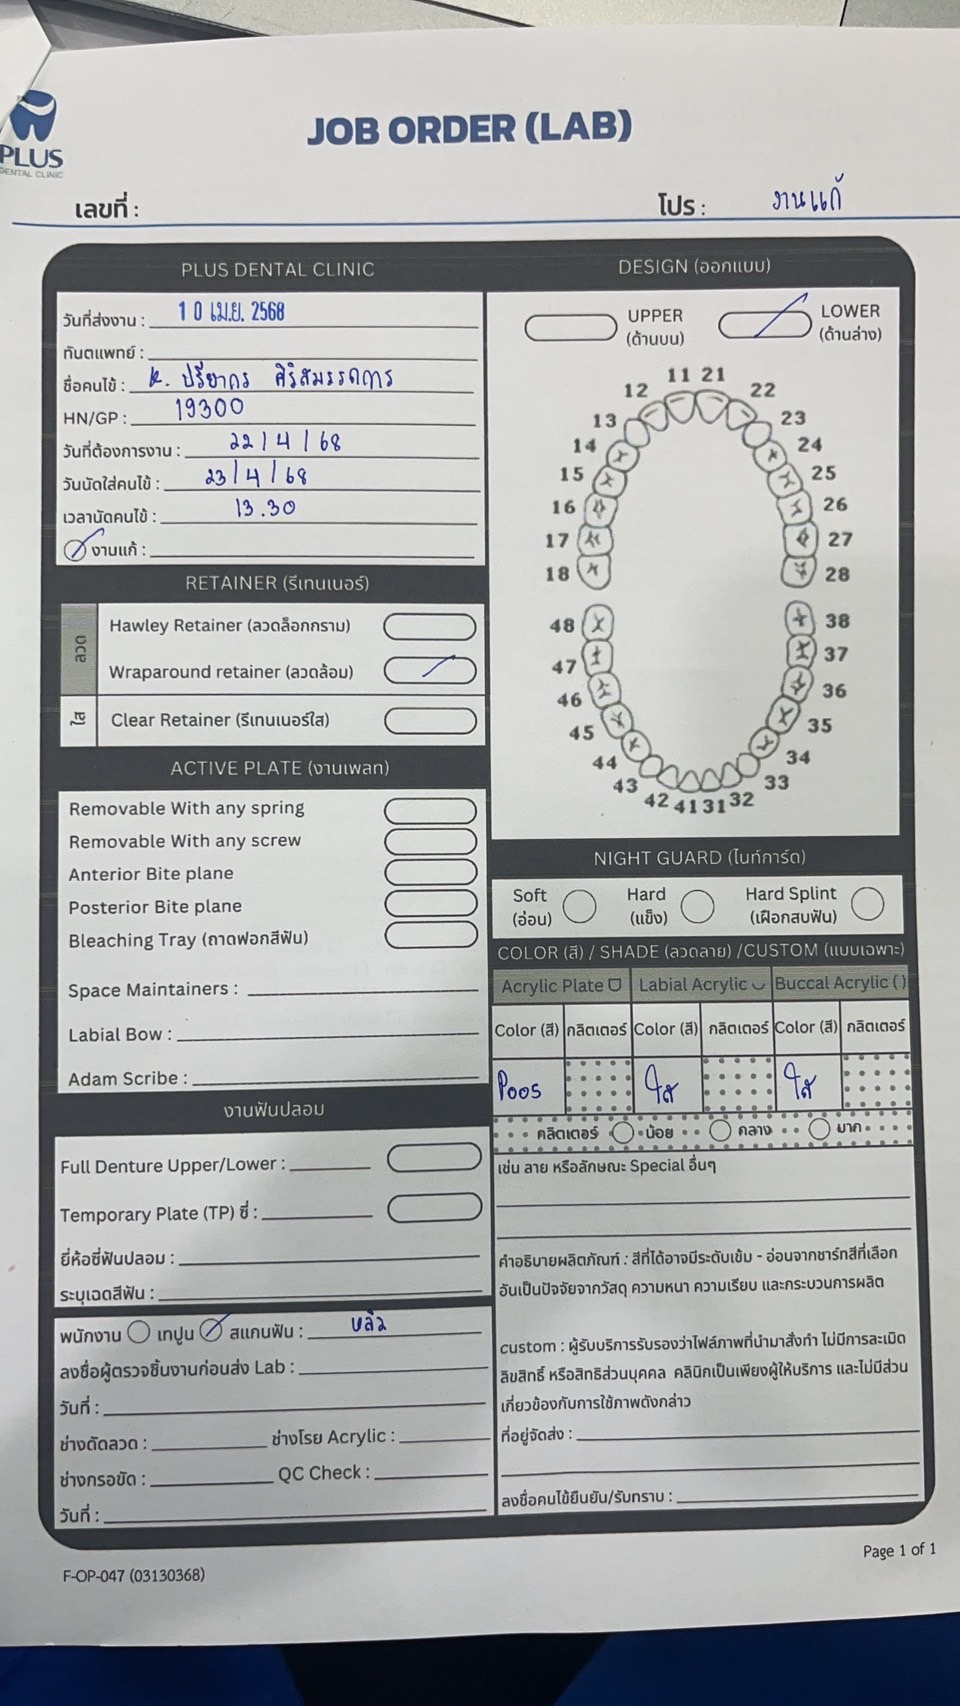 PLUS
DENTAL CLINIC
JOB ORDER (LAB)
เลขที่ :
โปร : งานแก้
PLUS DENTAL CLINIC
วันที่ส่งงาน : 10 เม.ย. 2568
ทันตแพทย์ :
ชื่อคนไข้ : k. ปรียากร ศิริสมรรถการ
HN/GP : 19300
วันที่ต้องการงาน : 22 / 4 / 68
วันนัดใส่คนไข้ : 23 / 4 / 68
เวลานัดคนไข้ : 13.30
งานแก้ :
RETAINER (รีเทนเนอร์)
ลวด
Hawley Retainer (ลวดล็อกกราม)
Wraparound retainer (ลวดล้อม)
ใส
Clear Retainer (รีเทนเนอร์ใส)
ACTIVE PLATE (งานเพลท)
Removable With any spring
Removable With any screw
Anterior Bite plane
Posterior Bite plane
Bleaching Tray (ถาดฟอกสีฟัน)
Space Maintainers :
Labial Bow :
Adam Scribe :
งานฟันปลอม
Full Denture Upper/Lower :
Temporary Plate (TP) ซี่ :
ยี่ห้อซี่ฟันปลอม :
ระบุเฉดสีฟัน :
พนักงาน เทปูน สแกนฟัน : หลิว
ลงชื่อผู้ตรวจชิ้นงานก่อนส่ง Lab :
วันที่ :
ช่างดัดลวด : ช่างโรย Acrylic :
ช่างกรอขัด : QC Check :
วันที่ :
DESIGN (ออกแบบ)
UPPER
(ด้านบน)
LOWER
(ด้านล่าง)
11 21
12 22
13 23
14 24
15 25
16 26
17 27
18 28
48 38
47 37
46 36
45 35
44 34
43 33
42 41 31 32
NIGHT GUARD (ไนท์การ์ด)
Soft
(อ่อน)
Hard
(แข็ง)
Hard Splint
(เฝือกสบฟัน)
COLOR (สี) / SHADE (ลวดลาย) /CUSTOM (แบบเฉพาะ)
Acrylic Plate Labial Acrylic Buccal Acrylic ( )
Color (สี) กลิตเตอร์ Color (สี) กลิตเตอร์ Color (สี) กลิตเตอร์
P005 ใส ใส
กลิตเตอร์ น้อย กลาง มาก
เช่น ลาย หรือลักษณะ Special อื่นๆ
คำอธิบายผลิตภัณฑ์ : สีที่ได้อาจมีระดับเข้ม - อ่อนจากชาร์ทสีที่เลือก
อันเป็นปัจจัยจากวัสดุ ความหนา ความเรียบ และกระบวนการผลิต
custom : ผู้รับบริการรับรองว่าไฟล์ภาพที่นำมาสั่งทำ ไม่มีการละเมิด
ลิขสิทธิ์ หรือสิทธิส่วนบุคคล คลินิกเป็นเพียงผู้ให้บริการ และไม่มีส่วน
เกี่ยวข้องกับการใช้ภาพดังกล่าว
ที่อยู่จัดส่ง :
ลงชื่อคนไข้ยืนยัน/รับทราบ :
Page 1 of 1
F-OP-047 (03130368)